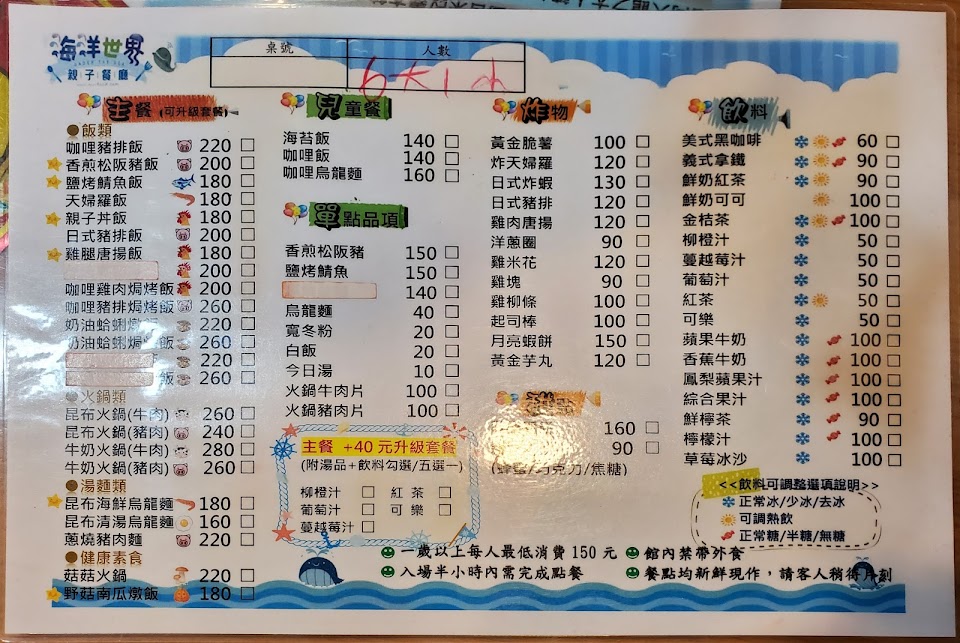 海洋世界
親子餐廳
桌號 人數
6大1小
主餐 (可升級套餐)
飯類
咖哩豬排飯 220
香煎松阪豬飯 200
鹽烤鯖魚飯 180
天婦羅飯 180
親子丼飯 180
日式豬排飯 200
雞腿唐揚飯 180
200
咖哩雞肉焗烤飯 200
咖哩豬排焗烤飯 260
奶油蛤蜊燉 220
奶油蛤蜊焗 飯 260
220
飯 260
火鍋類
昆布火鍋(牛肉) 260
昆布火鍋(豬肉) 240
牛奶火鍋(牛肉) 280
牛奶火鍋(豬肉) 260
湯麵類
昆布海鮮烏龍麵 180
昆布清湯烏龍麵 160
蔥燒豬肉麵 220
健康素食
菇菇火鍋 220
野菇南瓜燉飯 180
兒童餐
海苔飯 140
咖哩飯 140
咖哩烏龍麵 160
單點品項
香煎松阪豬 150
鹽烤鯖魚 150
140
烏龍麵 40
寬冬粉 20
白飯 20
今日湯 10
火鍋牛肉片 100
火鍋豬肉片 100
主餐 +40 元升級套餐
(附湯品+飲料勾選/五選一)
柳橙汁 紅茶
葡萄汁 可樂
蔓越莓汁
炸物
黃金脆薯 100
炸天婦羅 120
日式炸蝦 130
日式豬排 120
雞肉唐揚 120
洋蔥圈 90
雞米花 120
雞塊 90
雞柳條 100
起司棒 100
月亮蝦餅 150
黃金芋丸 120
160
90
(蜂蜜/巧克力/焦糖)
飲料
美式黑咖啡 60
義式拿鐵 90
鮮奶紅茶 90
鮮奶可可 100
金桔茶 100
柳橙汁 50
蔓越莓汁 50
葡萄汁 50
紅茶 50
可樂 50
蘋果牛奶 100
香蕉牛奶 100
鳳梨蘋果汁 100
綜合果汁 100
鮮檸茶 90
檸檬汁 100
草莓冰沙 100
<<飲料可調整選項說明>>
正常冰/少冰/去冰
可調熱飲
正常糖/半糖/無糖
一歲以上每人最低消費 150 元
館內禁帶外食
入場半小時內需完成點餐
餐點均新鮮現作，請客人稍待片刻